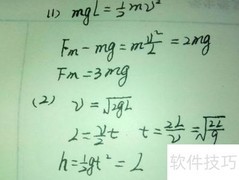 (1) mgL = ½mv²
Fm - mg = m v²/L = 2mg
Fm = 3mg
(2) v = √2gL
L = v/2 t   t = 2L/v = √2L/g
h = ½gt² = L
软件技巧